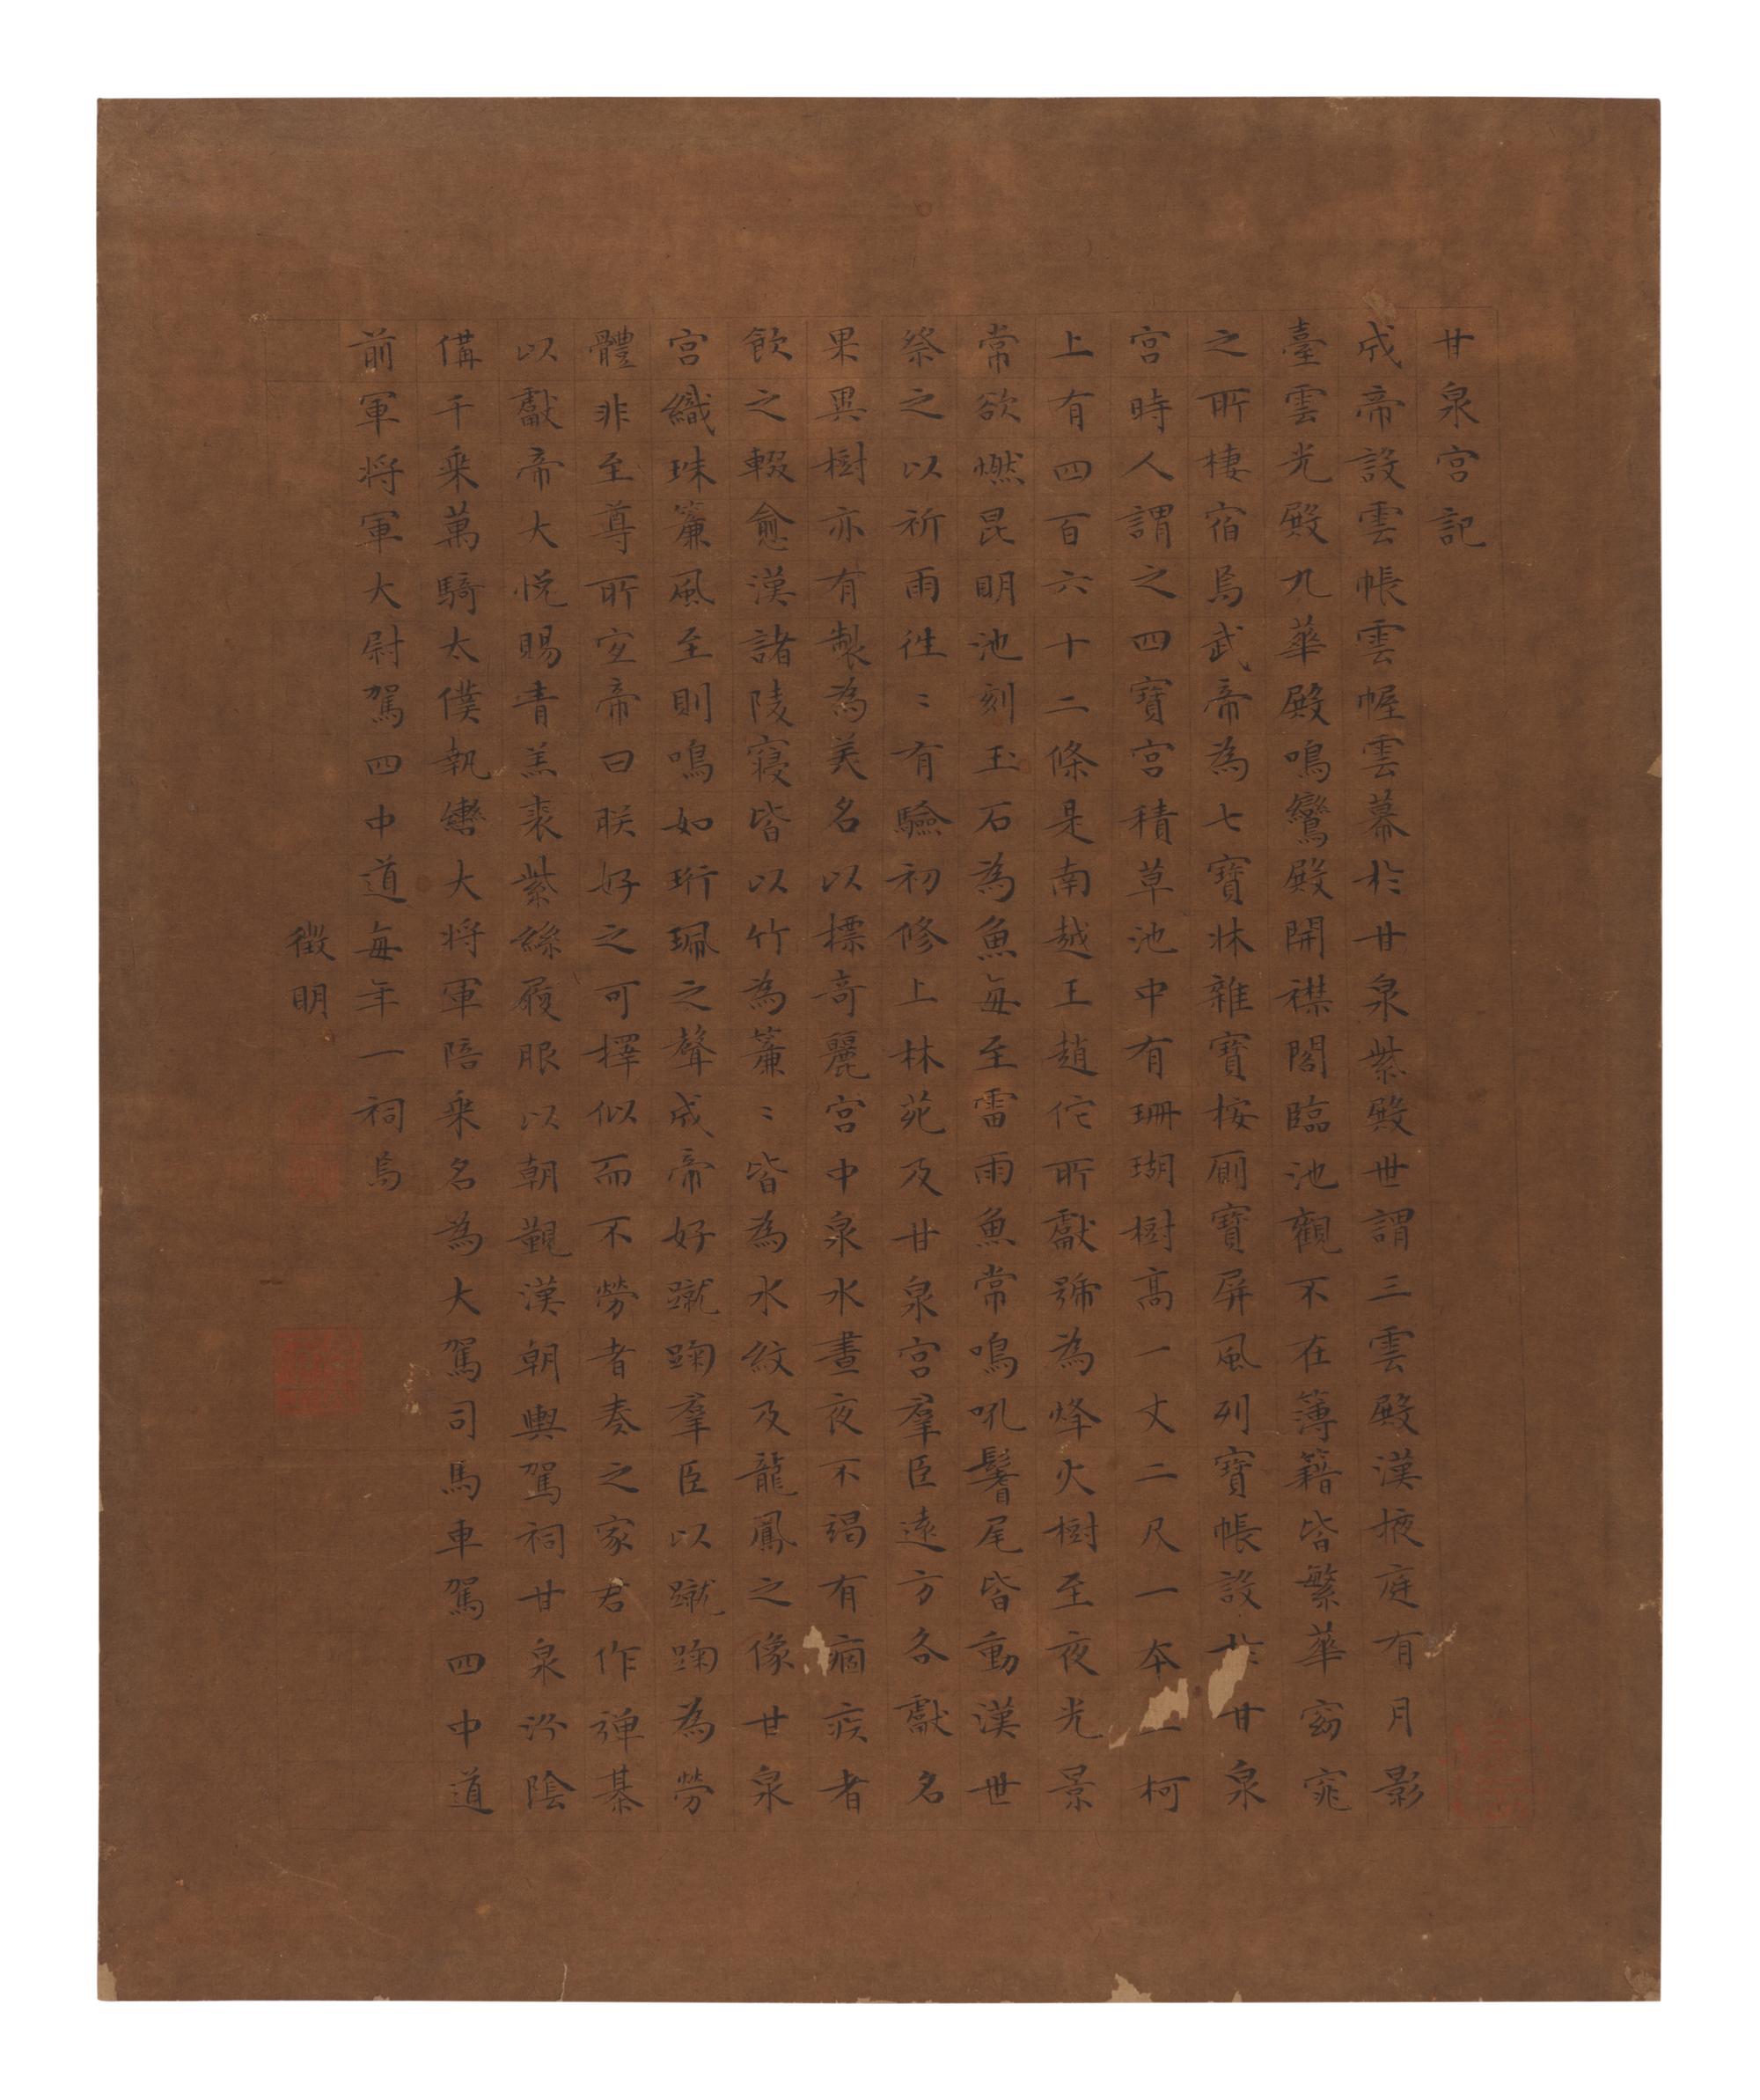 甘泉宮記
成帝設雲帳雲幄雲幕於甘泉紫殿世謂三雲殿漢掖庭有月影
臺雲光殿九華殿鳴鸞殿開襟閣臨池觀不在簿籍皆繁華窈窕
之所棲宿焉武帝為七寶牀雜寶桉厠寶屏風列寶帳設於甘泉
宮時人謂之四寶宮積草池中有珊瑚樹高一丈二尺一本三柯
上有四百六十二條是南越王趙佗所獻號為烽火樹至夜光景
常欲燃昆明池刻玉石為魚每至雷雨魚常鳴吼鬐尾皆動漢世
祭之以祈雨徃〻有驗初修上林苑及甘泉宮羣臣遠方各獻名
果異樹亦有製為美名以摽奇麗宮中泉水晝夜不竭有痼疾者
飲之輟愈漢諸陵寝皆以竹為簾〻皆為水紋及龍鳳之像甘泉
宮織珠簾風至則鳴如珩珮之聲成帝好蹴踘羣臣以蹴踘為勞
體非至尊所宜帝曰朕好之可擇似而不勞者奏之家君作弾棊
以獻帝大悦賜青羔裘紫絲履服以朝覲漢朝輿駕祠甘泉汾陰
備千乘萬騎太僕執轡大将軍陪乘名為大駕司馬車駕四中道
前軍将軍大尉駕四中道每年一祠焉
徵明